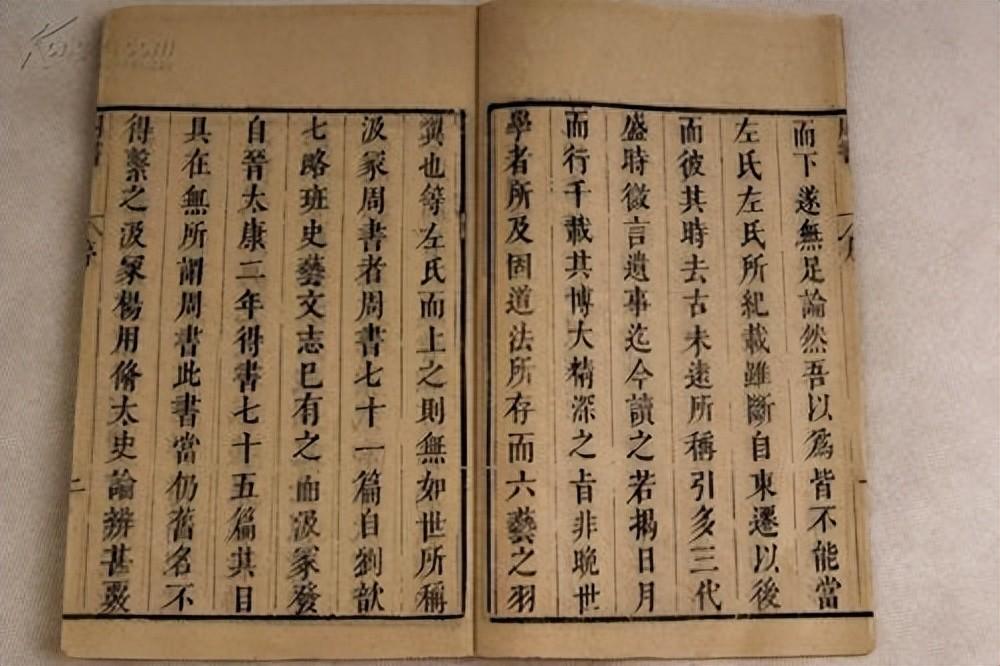 而下遂無足論然吾以爲皆不能當
左氏左氏所紀載雖斷自東遷以後
而彼其時去古未遠所稱引多三代
盛時微言遺事迄今讀之若揭日月
而行千載其博大精深之旨非晚世
學者所及固道法所存而六藝之羽
翼也等左氏而上之則無如世所稱
汲冢周書者周書七十一篇自劉歆
七略班史藝文志已有之而汲冢發
自晉太康二年得書七十五篇其目
具在無所謂周書此書當仍舊名不
得繫之汲冢楊用脩太史論辨甚覈
周書
序
一
二